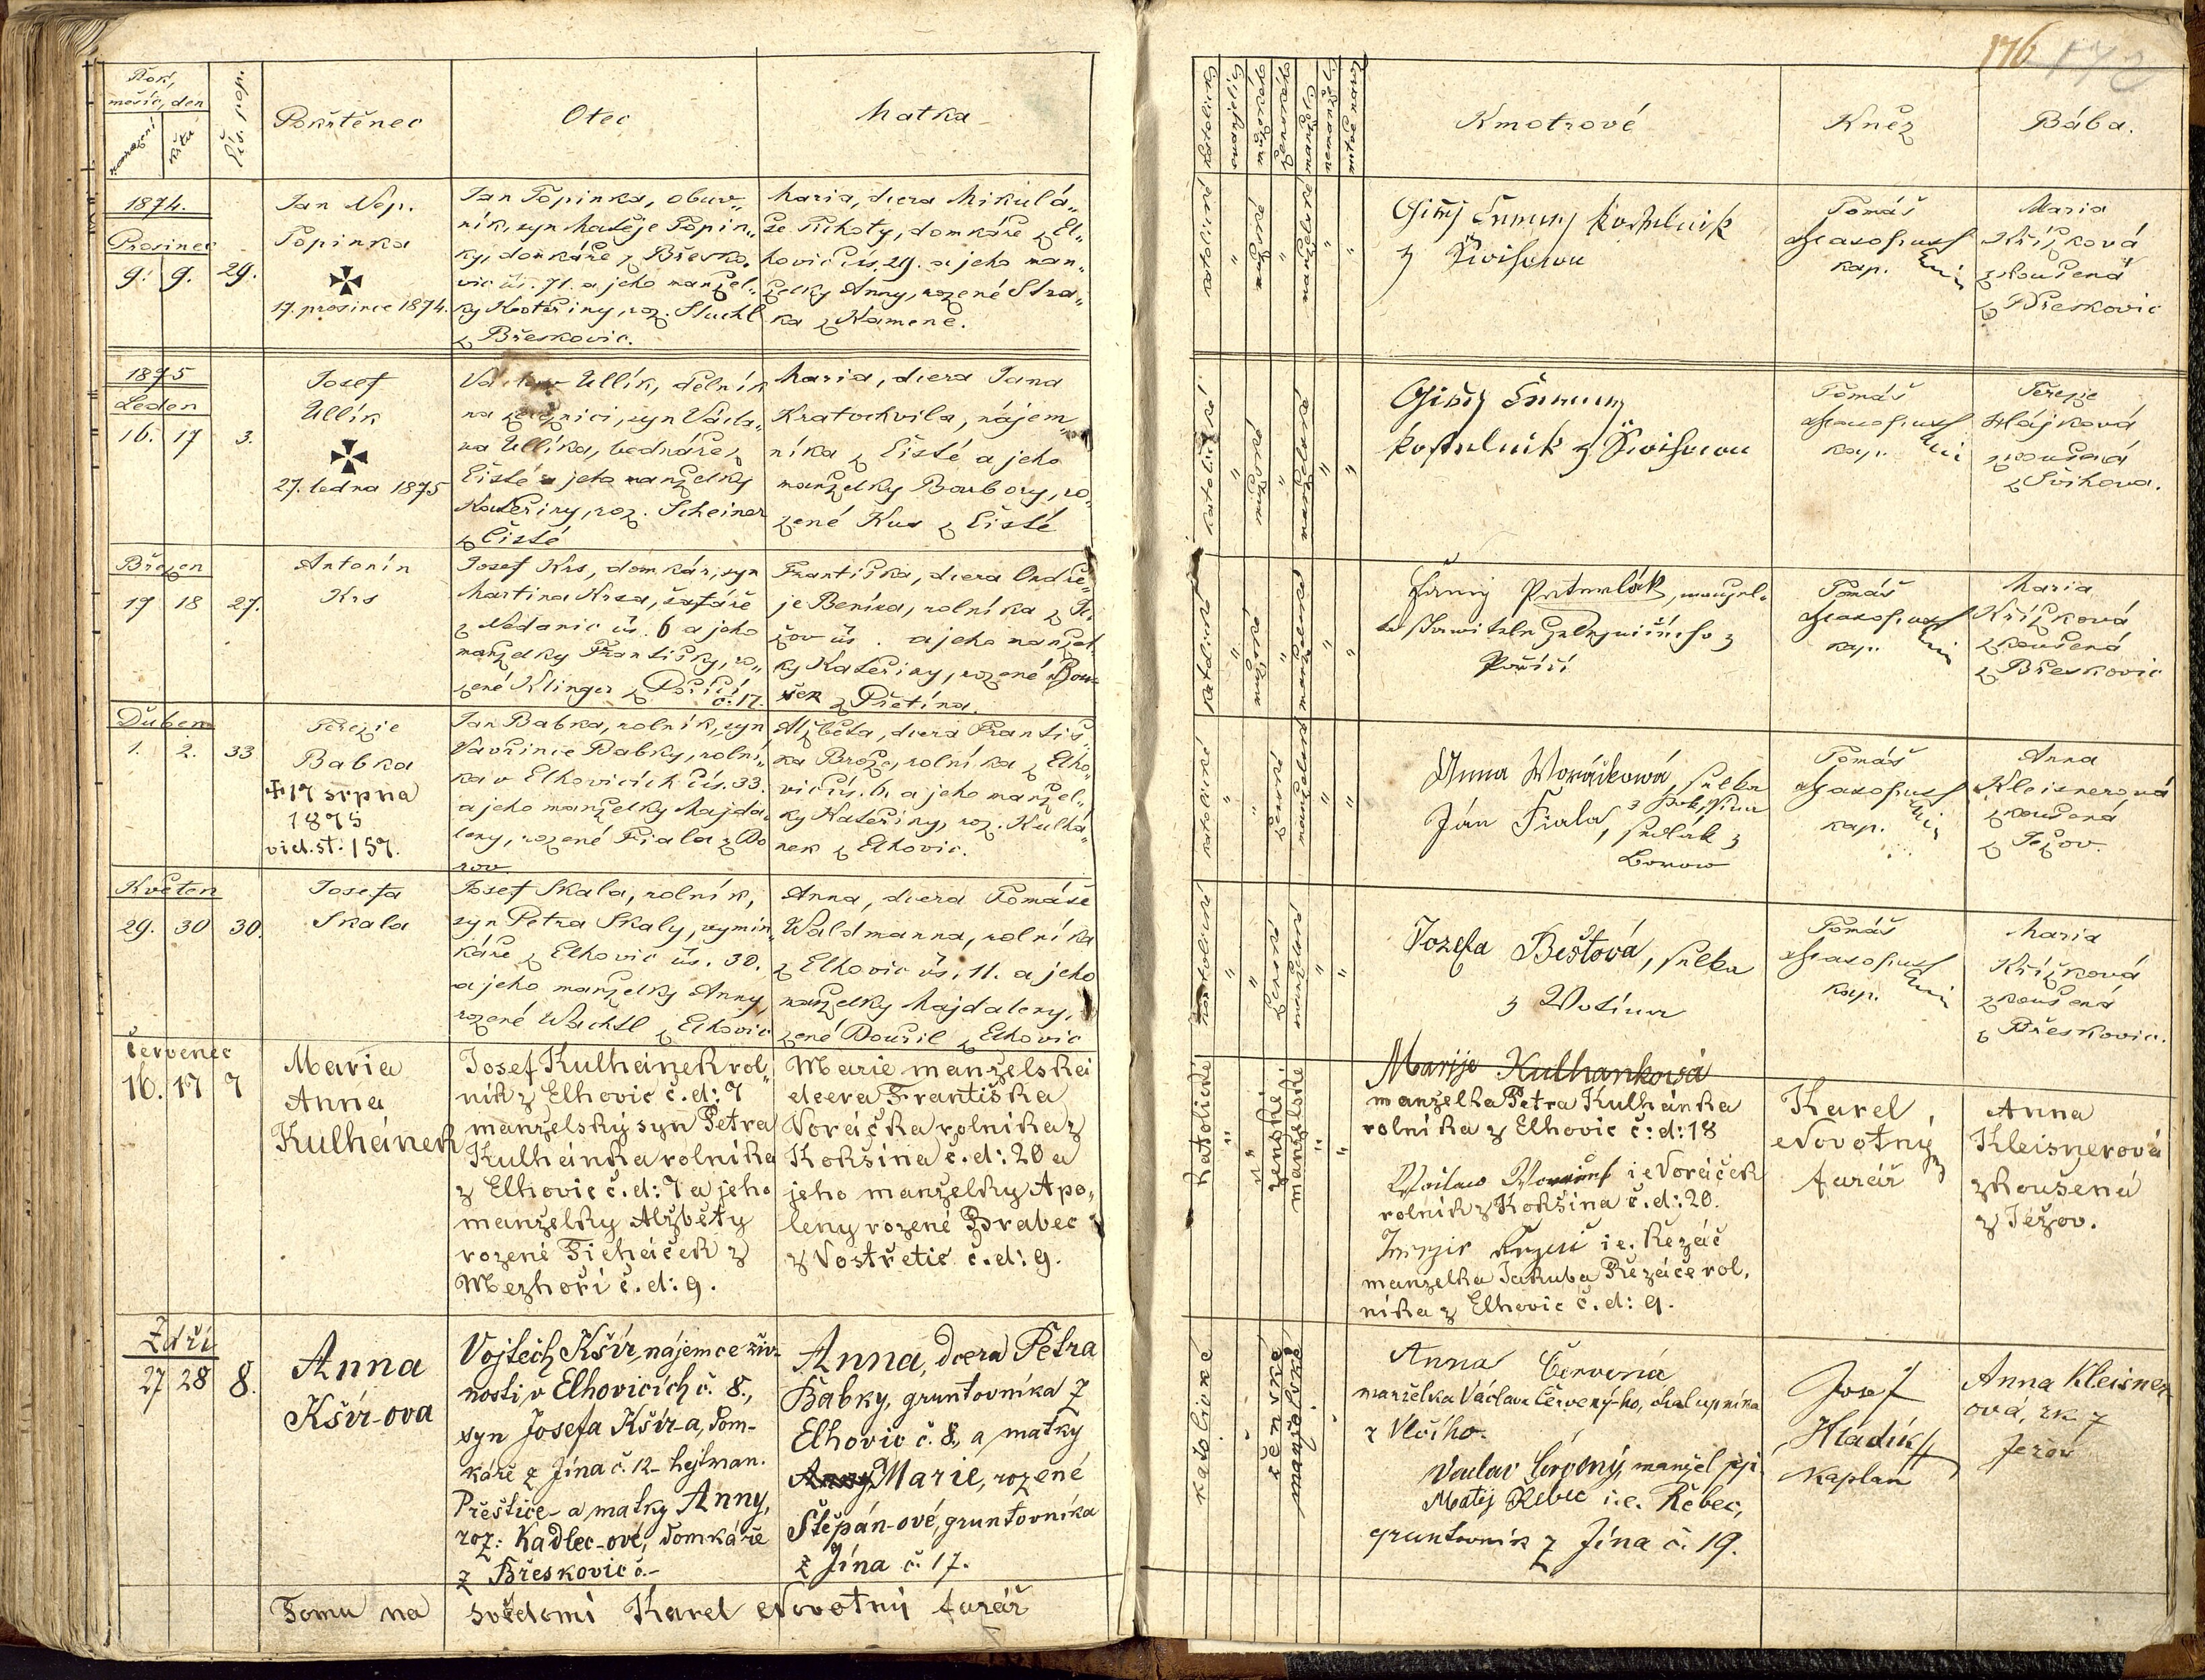 176
Rok,
měsíc, den
narození
křtu
Čís. pop.
Pokřtěnec
Otec
Matka
1874.
Prosinec
9. 9. 29.
Jan Nep.
Topinka
17. prosince 1874.
Jan Topinka, obuv„
ník, syn Matěje Topin„
ky, domkáře z Břesko„
vic čís. 71. a jeho manžel„
ky Kateřiny, roz. Stuchl
z Břeskovic.
Maria, dcera Mikulá„
še Tichoty, domkáře z El„
hovic čís. 29. a jeho man„
želky Anny, rozené Stra„
ka z Kamene.
1875
Leden
16. 17 3.
Josef
Ullík
27. ledna 1875
Ullík, dělník
na železnici, syn Václa„
va Ullíka, bednáře z
Čisté a jeho manželky
Kateřiny, roz. Scheiner
z Čisté
Maria, dcera Jana
Kratochvila, nájem„
níka z Čisté a jeho
manželky Barbory, ro„
zené Kus z Čisté
Březen
17 18 27.
Antonín
Krs
Josef Krs, domkář, syn
Martina Krsa, šafáře
z Nedanic čís. 6 a jeho
manželky Františky, ro„
zené Klinger z Poříčí
č. 17.
Františka, dcera Ondře„
je Beníka, rolníka z Je„
žov čís. a jeho manžel„
ky Kateřiny, rozené
z Přetína.
Duben
1. 2. 33
Terezie
Babka
17 srpna
1875
vid. st. 157.
Jan Babka, rolník, syn
Vavřince Babky, rolní„
ka v Elhovicích čís. 33.
a jeho manželky Majda„
leny, rozené Fiala z Bo
rov
Alžběta, dcera Františ„
ka Brože, rolníka z Elho„
vic čís. 6. a jeho manžel„
ky Kateřiny, roz. Kulhá„
nek z Elhovic.
Květen
29. 30 30.
Josefa
Skala
Josef Skala, rolník,
syn Petra Skaly, výmin„
káře z Elhovic čís. 30.
a jeho manželky Anny,
rozené Wachtl z Elhovic
Anna, dcera Tomáše
Waldmanna, rolníka
z Elhovic čís. 11. a jeho
manželky Majdaleny,
zené Bouzil z Elhovic
Červenec
16. 17 7
Maria
Anna
Kulhánek
Josef Kulhánek rol„
ník z Elhovic č. d: 7
manželský syn Petra
Kulhánka rolníka
z Elhovic č. d: 7 a jeho
manželky Alžběty
rozené Ticháček z
Mezhoří č. d: 9.
Marie manželská
dcera Františka
Voráčka rolníka z
Kokšína č. d: 20 a
jeho manželky Apo„
leny rozené Brabec
z Vostřetic č. d: 9.
Září
27 28 8.
Anna
Kšír-ova
Vojtěch Kšír, nájemce živ-
nosti v Elhovicích č. 8.,
syn Josefa Kšír-a, dom-
káře z Jína č. 12 - hejtman.
Přeštice - a matky Anny,
roz: Kadlec-ové, domkáře
z Břeskovic č. -
Anna, dcera Petra
Babky, gruntovníka z
Elhovic č. 8., a matky
Anny Marie, rozené
Štěpán-ové, gruntovníka
z Jína č. 17.
Tomu na svědomí Karel Novotný farář
Kmotrové
Kněz
Bába.
katolické
mužské
manželské
kostelník
z
Tomáš
kap.
Maria
Křížková
zkoušená
z Břeskovic
katolické
mužské
manželské
kostelník z
Tomáš
kap.
Terezie
Hájková
zkoušená
z Švihova.
katolické
mužské
manželské
Poříčí
Tomáš
kap.
Maria
Křížková
zkoušená
z Břeskovic
katolické
ženské
manželské
Anna Woráčkowá, selka
Ján Fiala, sedlák z
Borow
Tomáš
kap.
Anna
Kleisnerová
zkoušená
z Ježov.
katolické
ženské
manželské
Jozefa Beštová, selka
z Wotína
Tomáš
kap.
Maria
Křížková
zkoušená
z Břeskovic.
katolické
ženské
manželské
Marije Kulhanková
manželka Petra Kulhánka
rolníka z Elhovic č: d: 18
i e Voráček
rolník z Kokšína č. d: 20.
i. e. Řezáč
manželka Jakuba Řezáče rol„
níka z Elhovic č. d: 9.
Karel
Novotný
farář
Anna
Kleisnerová
zkoušená
z Ježov.
katolické
ženské
manželské
Anna Červená
manželka Václava Červený-ho, chalupníka
z Vlčího.
Václav Červený, manžel její
Matěj Řebec i. e. Řebec,
gruntovník z Jína č. 19.
Josef
Hladík
Kaplan
Anna Kleisner
ová, zk. z
Ježov